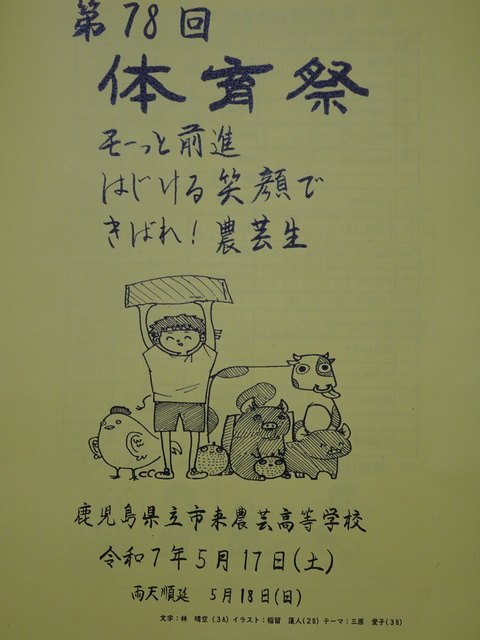 第78回
体育祭
モーっと前進
はじける笑顔で
きばれ！農芸生
鹿児島県立市来農芸高等学校
令和7年5月17日(土)
雨天順延 5月18日(日)
文字：林 晴空(3A)イラスト：稲留 蓮人(2B)テーマ：三原 愛子(3B)